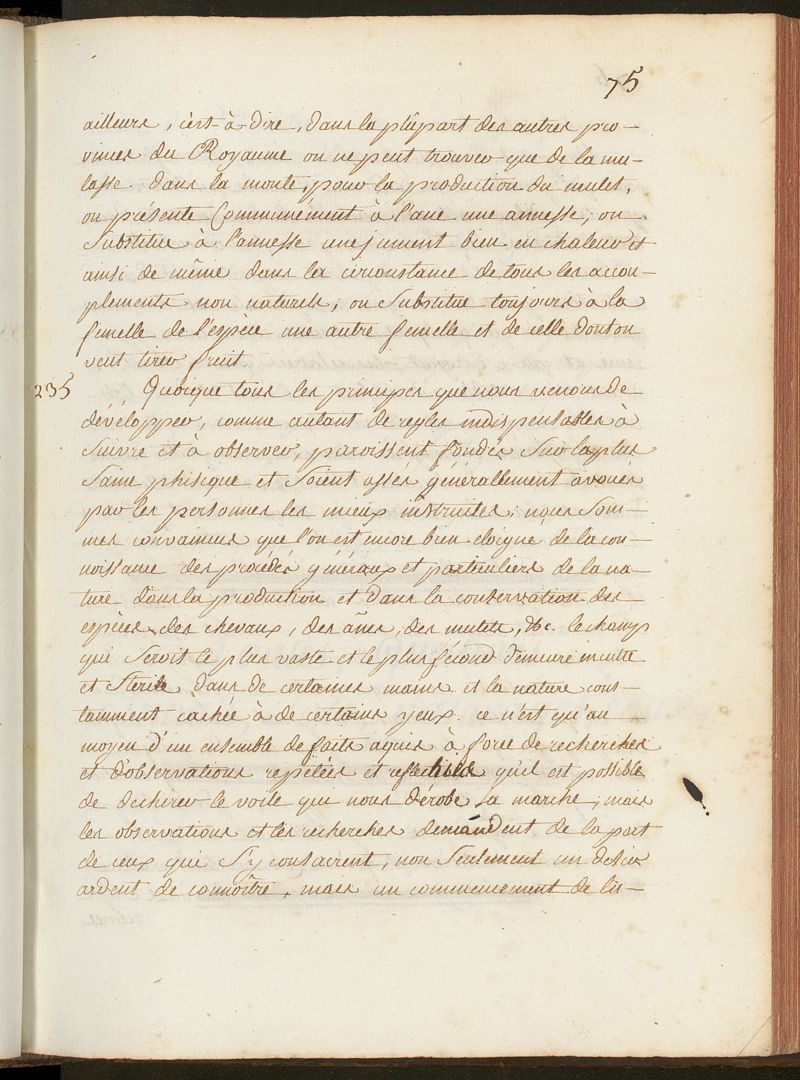 75
ailleurs, c'est-à-dire, dans la plûpart des autres pro-
vinces du Royaume on ne peut trouver que de la mu-
lasse. dans la monte, pour la production du mulet,
on présente Communément à l'ane une annesse, on
Substitue à l'annesse une jument bien en chaleur et
ainsi de même dans la circonstance de tous les accou-
plements non naturels, on Substitue toujours à la
femelle de l'espèce une autre femelle et de celle dont on
veut tirer fruit.
235 Quoique tous les principes que nous venons de
développer, comme autant de regles indispensables à
Suivre et à observer, paroissent fondés Sur la plus
Saine phisique et Soient assés générallement avoués
par les personnes les mieux instruites, nous Som-
mes convaincus que l'on est encore bien eloigné de la con-
noissance des procédés généraux et particuliers de la na-
ture dans la production et dans la conservation des
espèces des chevaux, des ânes, des mulets, &c. le champ
qui Seroit le plus vaste et le plus fécond demeure inculte
et Sterile dans de certaines mains et la nature cons-
tamment cachée à de certains yeux. ce n'est qu'au
moyen d'un ensemble de faits aquis à force de recherches
et d'observations repetées et reflechies qu'il est possible
de dechirer le voile qui nous dérobe sa marche, mais
les observations et les recherches demandent de la part
de ceux qui S'y consacrent, non Seulement un desir
ardent de connoître, mais un commencement de lu-